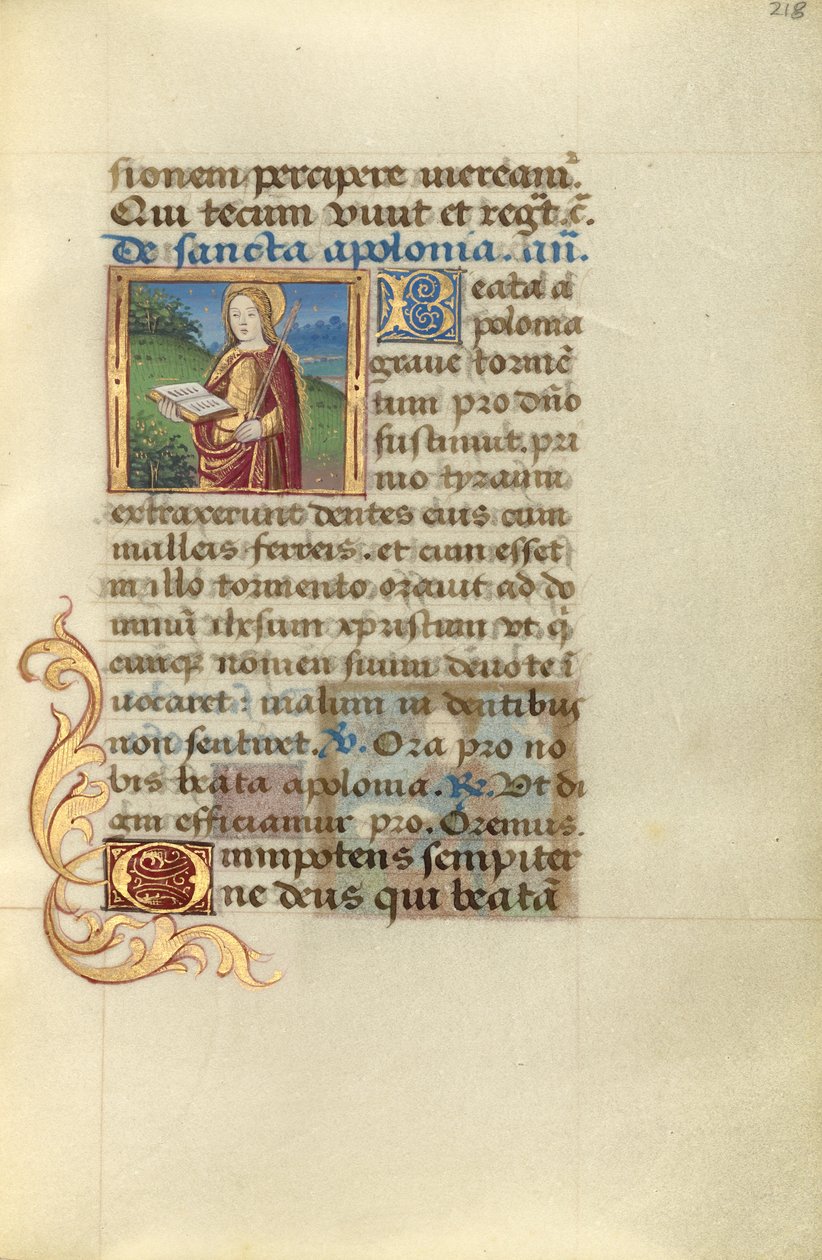 218
sionem percipere mereamr̃.
Qui tecum viuit et regt̃. c̃.
De sancta apolonia. añ.
Beata a
polonia
graue tormẽ
tum pro dño
sustinuit. pri
mo tyranni
extraxerunt dentes eius cum
malleis ferreis. et cum esset
in illo tormento orauit ad do
minũ ihesum xpristum vt q̃
cunq̃ nomen suum deuote ĩ
uocaret: malum in dentibus
non sentiret. V. Ora pro no
bis beata apolonia. Re. Vt di
gni efficiamur pro. Oremus.
Omnipotens sempiter
ne deus qui beatã